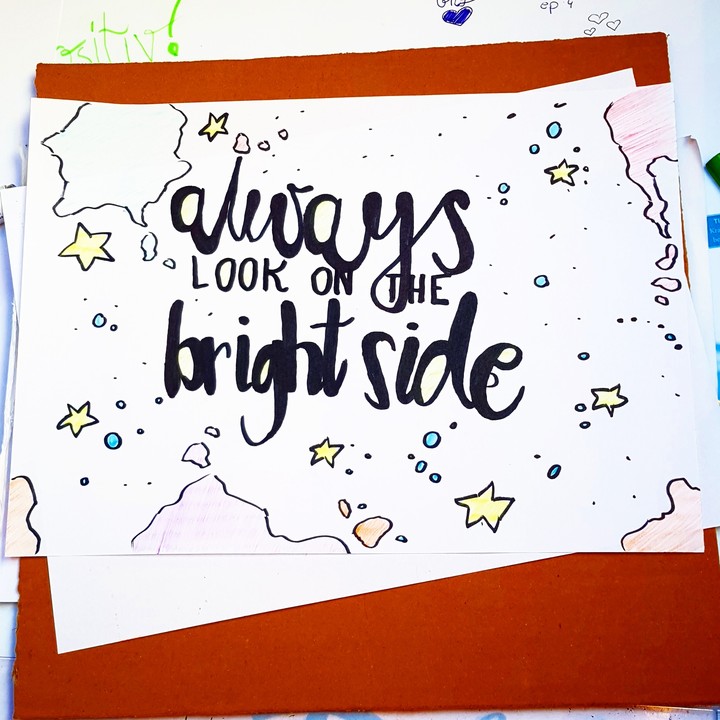 ep 4
always
LOOK ON THE
bright side